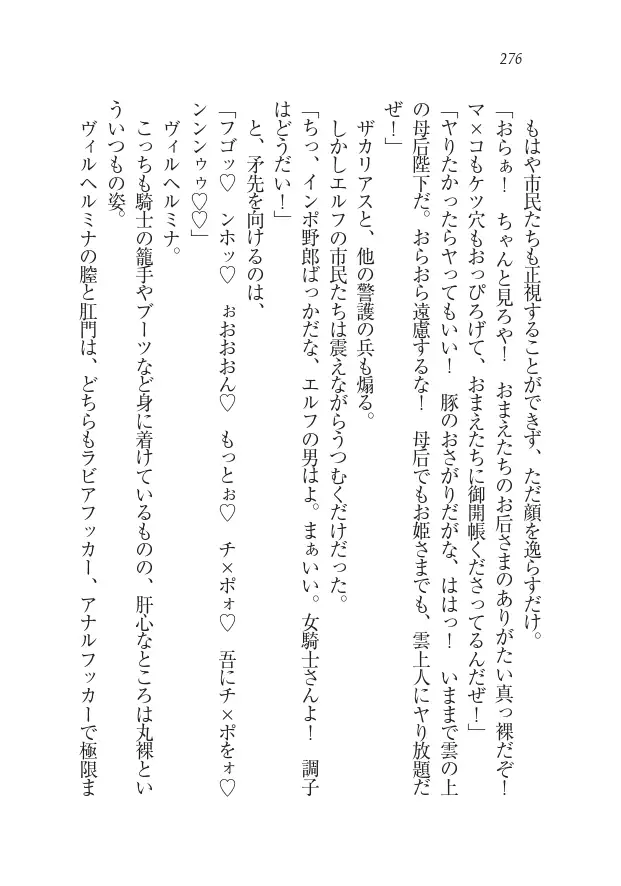 276
　もはや市民たちも正視することができず、ただ顔を逸らすだけ。
「おらぁ！　ちゃんと見ろや！　おまえたちのお后さまのありがたい真っ裸だぞ！
マ×コもケツ穴もおっぴろげて、おまえたちに御開帳くださってるんだぜ！」
「ヤりたかったらヤってもいい！　豚のおさがりだがな、ははっ！　いままで雲の上
の母后陛下だ。おらおら遠慮するな！　母后でもお姫さまでも、雲上人にヤり放題だ
ぜ！」
　ザカリアスと、他の警護の兵も煽る。
　しかしエルフの市民たちは震えながらうつむくだけだった。
「ちっ、インポ野郎ばっかだな、エルフの男はよ。まぁいい。女騎士さんよ！　調子
はどうだい！」
　と、矛先を向けるのは、
「フゴッ♡　ンホッ♡　ぉおおおん♡　もっとぉ♡　チ×ポォ♡　吾にチ×ポをォ♡
ンンンゥゥ♡♡」
　ヴィルヘルミナ。
　こっちも騎士の籠手やブーツなど身に着けているものの、肝心なところは丸裸とい
ういつもの姿。
　ヴィルヘルミナの膣と肛門は、どちらもラビアフッカー、アナルフッカーで極限ま